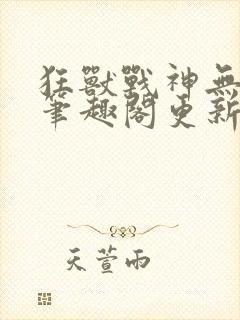 狂獸戰神無
筆趣閣更新
天萱雨